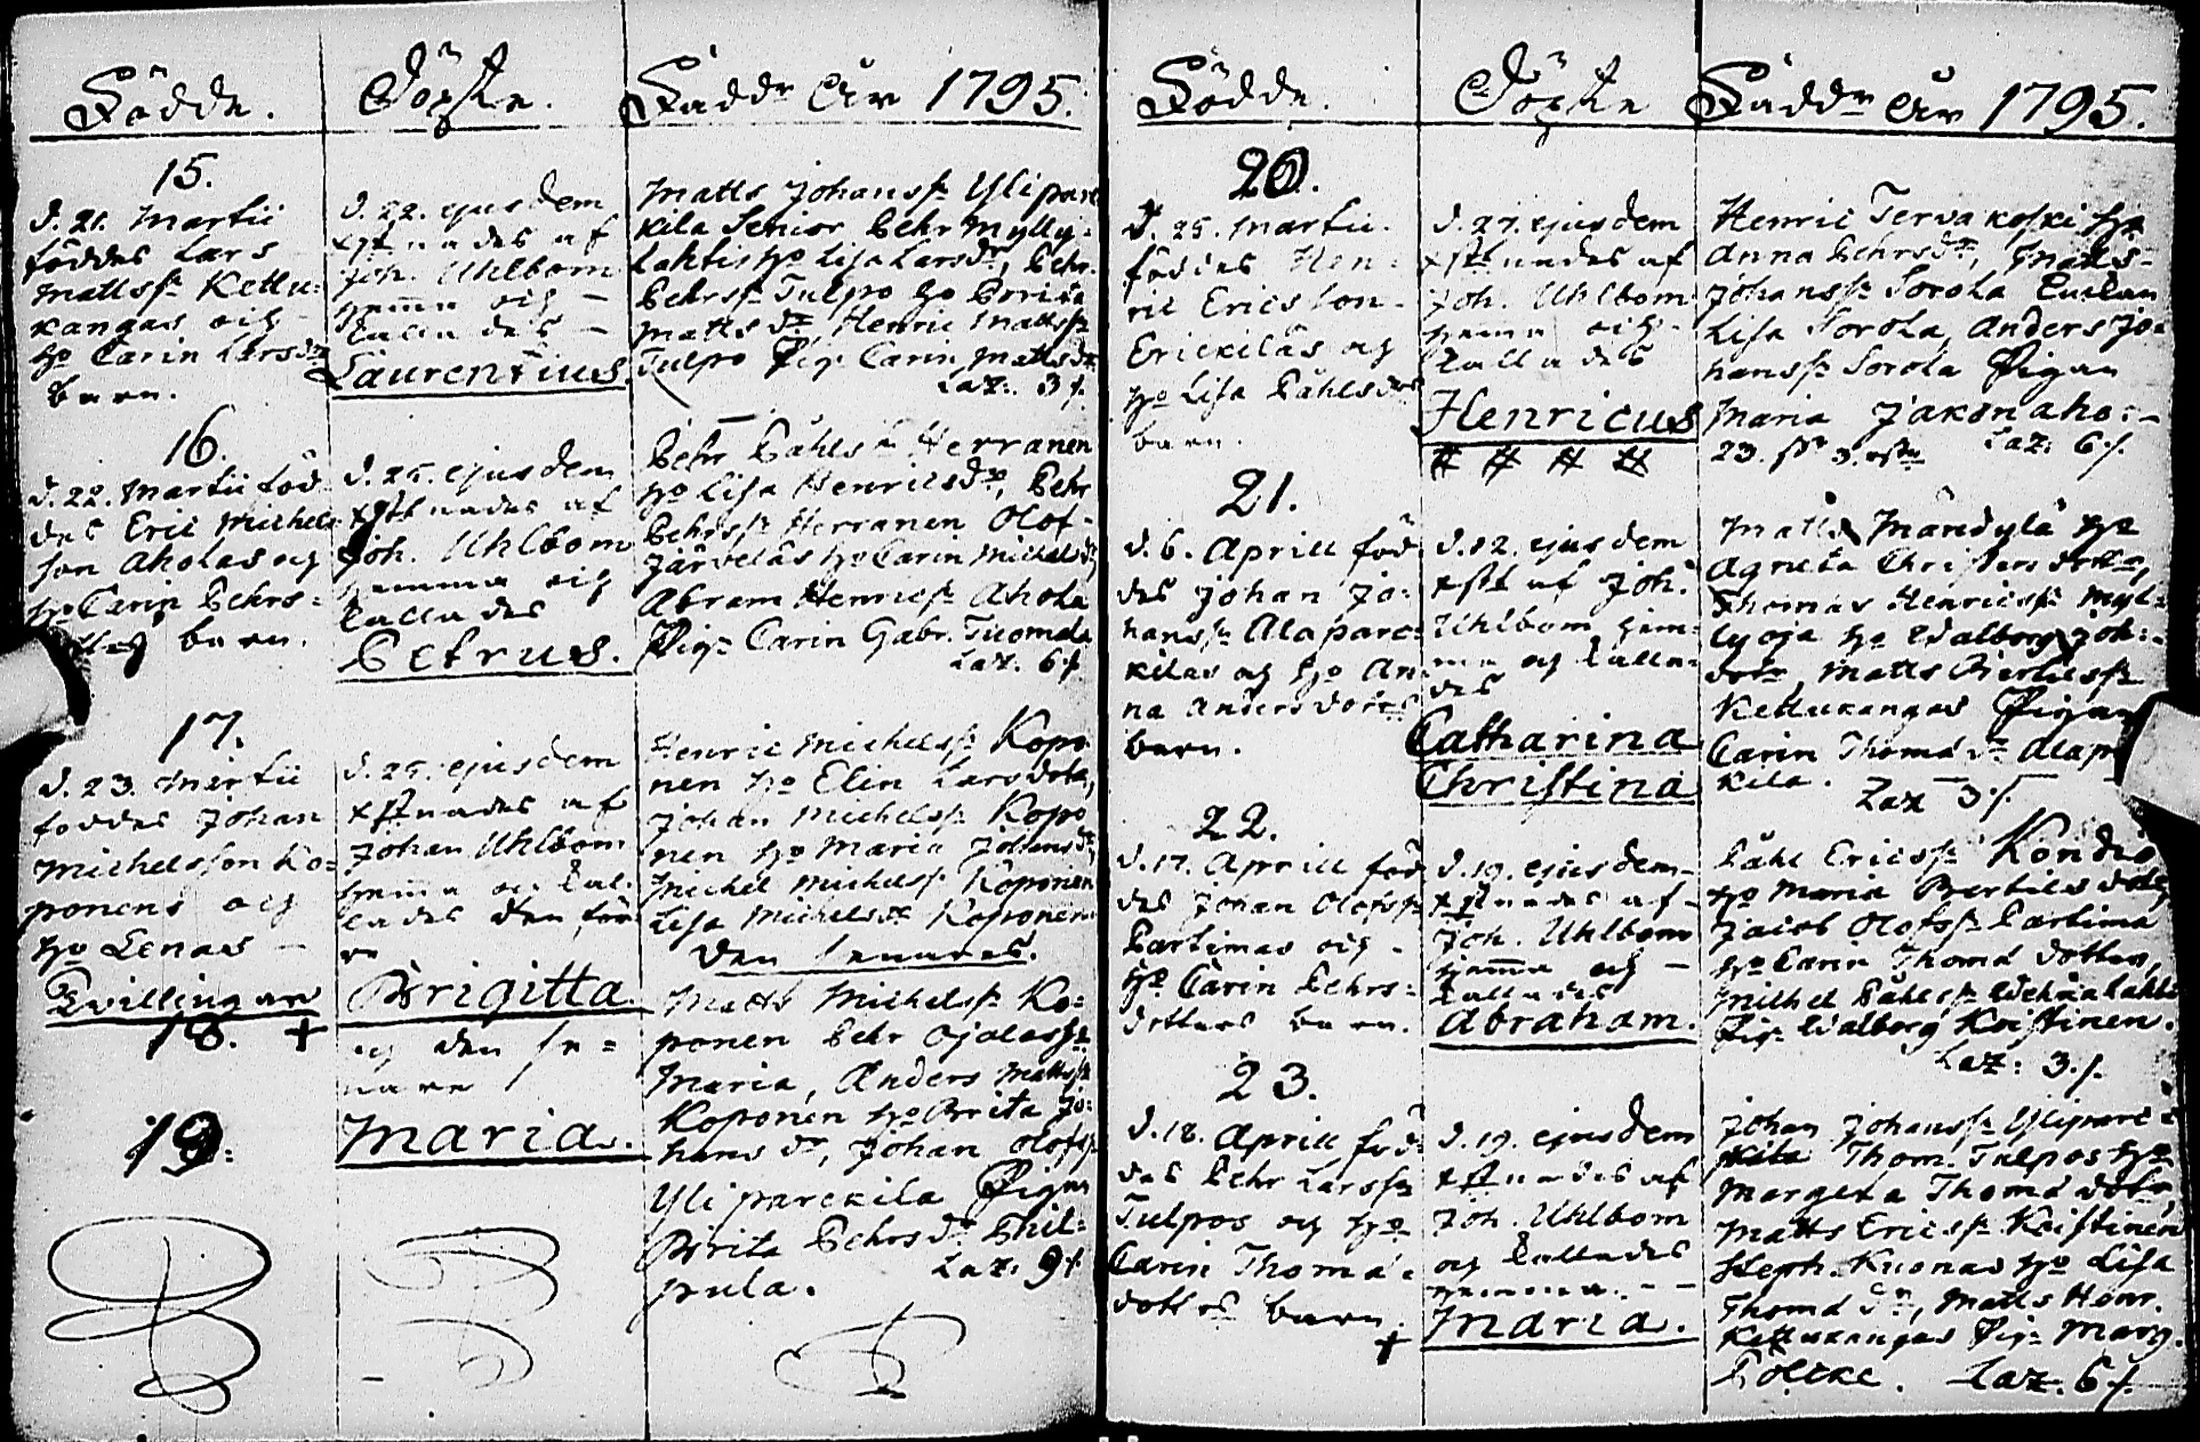 Födde.
Döpte.
Fadd.r År 1795.
15.
d. 21. Martii
föddes Lars
Mattss. Kettu=
kangas och
h:o Carin Larsdr
barn.
d. 22. ejusdem
xstnades af
Joh. Uhlbom
hemma och
kallades
Laurentius.
Matts Johanss. Ylipare
kila Senior Pehr Mylly=
lahtis h:o Lisa Larsdr, Pehr
Pehrss. Tulpo h:o Brita
Mattsdr, Henric Mattss.
Tulpo Pig. Carin Mattsdr
Laz. 3 /.
16.
d. 22. Martii föd
des Eric Michels
son Aholas och
h:o Carin Pehrs=
barn.
d. 25. ejusdem
xstnades af
Joh. Uhlbom
hemma och
kallades
Petrus.
Pehr Påhls. Herranen
h:o Lisa Henricsdr, Pehr
Pehrss. Herranen Olof
Järveläs h:o Carin Michelsdr
Abram Henricss. Ahola
Pig. Carin Gabr. Tuomala
Laz. 6 /.
17.
d. 23. Martii
föddes Johan
Michelsson Ko=
ponens och
h:o Lenas
Tvillingar
18. +
19.
d. 25. ejusdem
xstnades af
Johan Uhlbom
hemma och kal=
lades den för
re
Brigitta
och den se=
nare
Maria.
Henric Michelss. Kopo
nen h:o Elin Larsdotr,
Johan Michelss. Kopo
nen h:o Maria Johansdr,
Michel Michelss. Koponen
Lisa Michelsdr Koponen
Den senares.
Matts Michelss. Ko=
ponen Pehr Ojalas h:o
Maria, Anders Mattss.
Koponen h:o Brita Jo=
hansdr, Johan Olofss.
Yliparckila Pigan
Brita Pehrsdr Phil=
pula. Laz. 9 /.
Födde.
Döpte
Fadd.r År 1795.
20.
d. 25. Martii
föddes Hen=
ric Ericsson
Erickiläs och
h:o Lisa Påhlsdrs
barn.
d. 27. ejusdem
xstnades af
Joh. Uhlbom
hemma och
kallades
Henricus
# # # #
Henric Tervakoski h:o
Anna Pehrsdr, Matts
Johanss. Sorola Enkan
Lisa Sorola, Anders Jo=
hanss. Sorola Pigan
Maria Jakonaho.
Laz. 6 /.
21.
d. 6. Aprill föd
des Johan Jo=
hanss. Alaparc=
kilas och h:o An
na Andersdotrs
barn.
d. 12. ejusdem
xst af Joh.
Uhlbom hem=
ma och kalla=
des
Catharina
Christina
Matts Mändylä h:o
Agneta Christersdotter,
Thomas Henricss. Myl=
lyoja h:o Walborg Joh.
dotr, Matts Bertilss.
Kettukangas Pigan
Carin Thomædr Alapar
kila. Laz 3 /.
22.
d. 17. Aprill föd
des Johan Olofss.
Partimas och
h:o Carin Pehrs=
dotters barn.
d. 19. ejusdem
xstnades af
Joh. Uhlbom
hemma och
kallades
Abraham.
Påhl Ericss. Kondio
h:o Maria Bertilsdotr,
Jacob Olofss. Partima
h:o Carin Thomædotter,
Michel Påhlss.
Pig. Walborg Koistinen.
Laz: 3 /.
23.
d. 18. Aprill föd=
des Pehr Larsson
Tulpos och h:o
Carin Thomæ=
dotrs barn.
+
d. 19. ejusdem
xstnades af
Joh. Uhlbom
och kallades
hemma.
Maria.
Johan Johanss. Yliparc=
kila Thom. Tulpos h:o
Margeta Thomædotr,
Matts Ericss. Koistinen
Steph. Kuonas h:o Lisa
Thomædr, Matts Henr.
Kettukangas Pig. Marg.
Pölcke. Laz. 6 /.